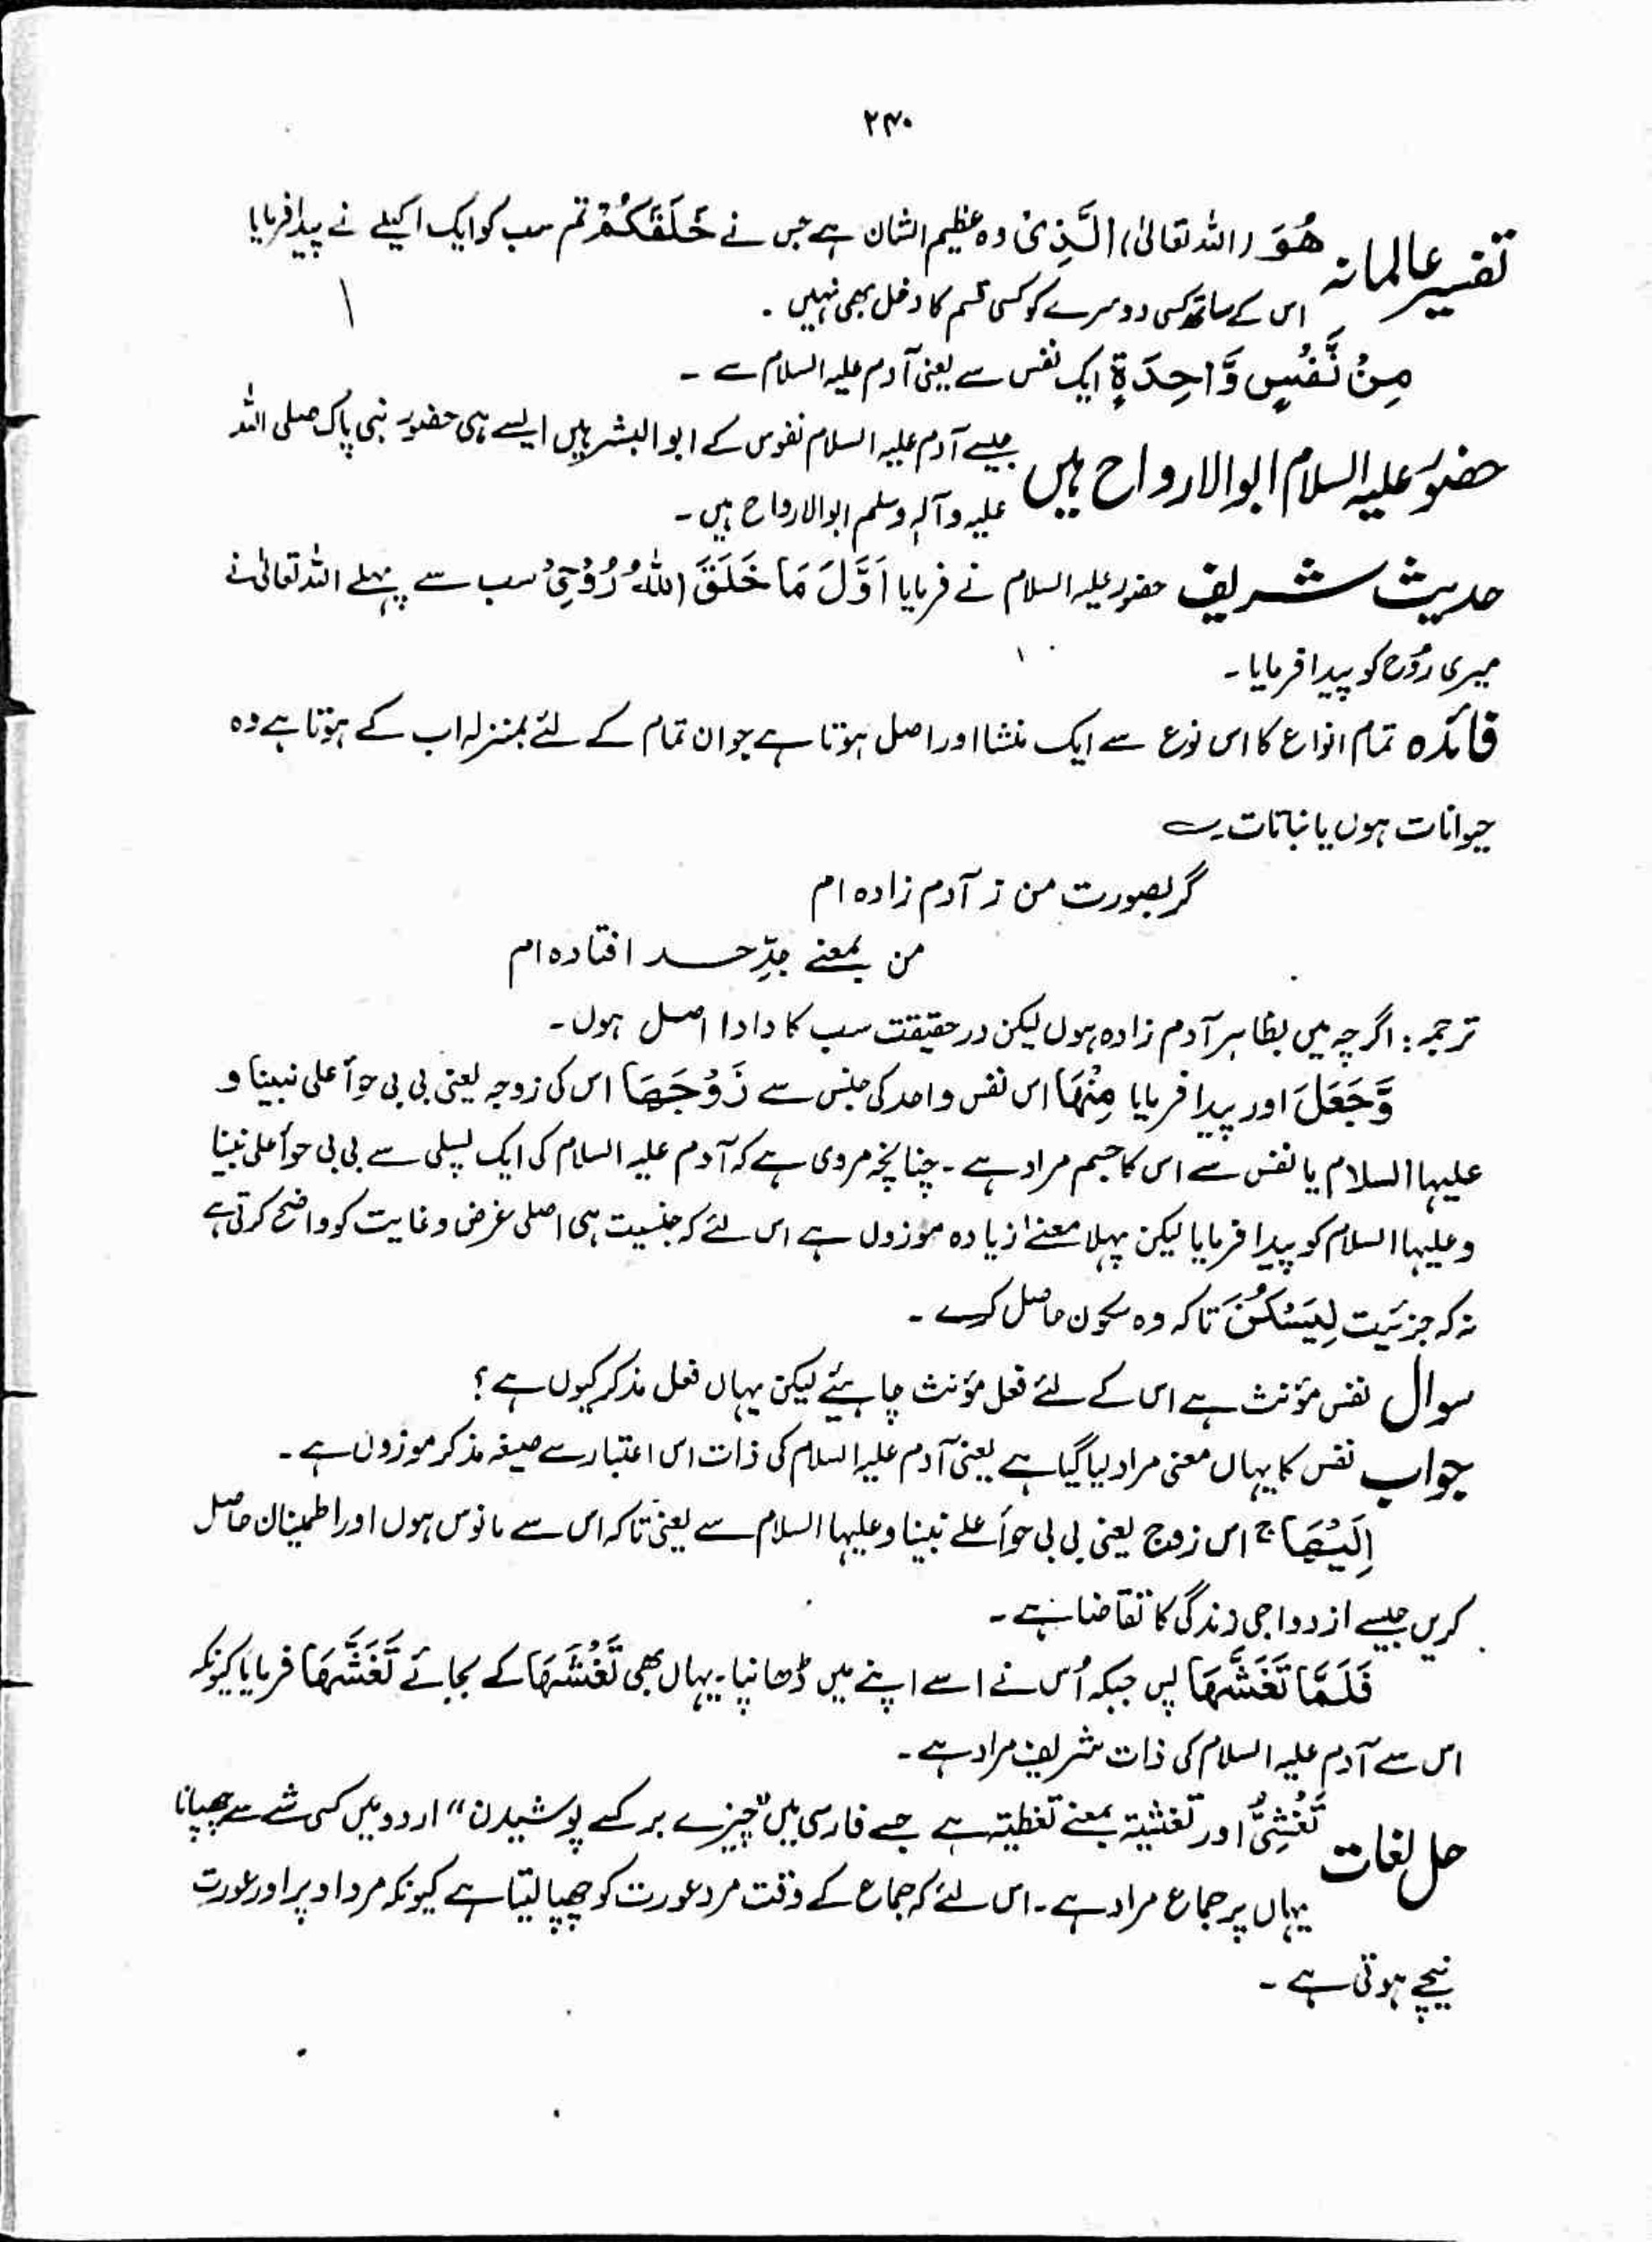 ۲۴۰
تفسیر عالمانہ هُوَ (اللہ تعالیٰ) الَّذِیْ وہ عظیم الشان ہے جس نے خَلَقَكُمْ تم سب کو ایک اکیلے نے پیدا فرمایا
اس کے ساتھ کسی دوسرے کو کسی قسم کا دخل بھی نہیں ۔
مِنْ نَّفْسٍ وَّاحِدَةٍ ایک نفس سے یعنی آدم علیہ السلام سے ۔
حضور علیہ السلام ابوالارواح ہیں جیسے آدم علیہ السلام نفوس کے ابوالبشر ہیں ایسے ہی حضور نبی پاک صلی اللہ
علیہ وآلہٖ وسلم ابوالارواح ہیں ۔
حدیث شریف حضور علیہ السلام نے فرمایا اَوَّلَ مَا خَلَقَ اللهُ رُوْحِیْ سب سے پہلے اللہ تعالیٰ نے
میری رُوح کو پیدا فرمایا ۔
فائدہ تمام انواع کا اس نوع سے ایک منشا اور اصل ہوتا ہے جو ان تمام کے لئے بمنزلہ اب کے ہوتا ہے وہ
حیوانات ہوں یا نباتات ۔ ؎
گر بصورت من ز آدم زادہ ام
من بمعنے جدِّ جد افتادہ ام
ترجمہ : اگرچہ میں بظاہر آدم زادہ ہوں لیکن درحقیقت سب کا دادا اصل ہوں ۔
وَّجَعَلَ اور پیدا فرمایا مِنْهَا اس نفس واحد کی جنس سے زَوْجَهَا اس کی زوجہ یعنی بی بی حوّا علی نبینا و
علیہا السلام یا نفس سے اس کا جسم مراد ہے ۔ چنانچہ مروی ہے کہ آدم علیہ السلام کی ایک پسلی سے بی بی حوّا علیٰ نبینا
وعلیہا السلام کو پیدا فرمایا لیکن پہلا معنےٰ زیادہ موزوں ہے اس لئے کہ جنسیت ہی اصلی غرض وغایت کو واضح کرتی ہے
نہ کہ جزئیت لِیَسْكُنَ تاکہ وہ سکون حاصل کرے ۔
سوال نفس مؤنث ہے اس کے لئے فعل مؤنث چاہیئے لیکن یہاں فعل مذکر کیوں ہے ؟
جواب نفس کا یہاں معنی مراد لیا گیا ہے یعنی آدم علیہ السلام کی ذات اس اعتبار سے صیغہ مذکر موزوں ہے ۔
اِلَیْهَا ج اس زوج یعنی بی بی حوّا علے نبینا وعلیہا السلام سے یعنی تاکہ اس سے مانوس ہوں اور اطمینان حاصل
کریں جیسے ازدواجی زندگی کا تقاضا ہے ۔
فَلَمَّا تَغَشّٰهَا پس جبکہ اُس نے اسے اپنے میں ڈھانپا ۔ یہاں بھی تَغْشٰهَا کے بجائے تَغَشّٰهَا فرمایا کیونکہ
اس سے آدم علیہ السلام کی ذات شریف مراد ہے ۔
حل لغات تَغَشِّیْ اور تغشیۃ بمعنے تغطیتہ ہے جسے فارسی میں ”چیزے برکسے پوشیدن“ اردو میں کسی شے سے چھپانا
یہاں پر جماع مراد ہے ۔ اس لئے کہ جماع کے وقت مرد عورت کو چھپا لیتا ہے کیونکہ مرد اوپر اور عورت
نیچے ہوتی ہے ۔